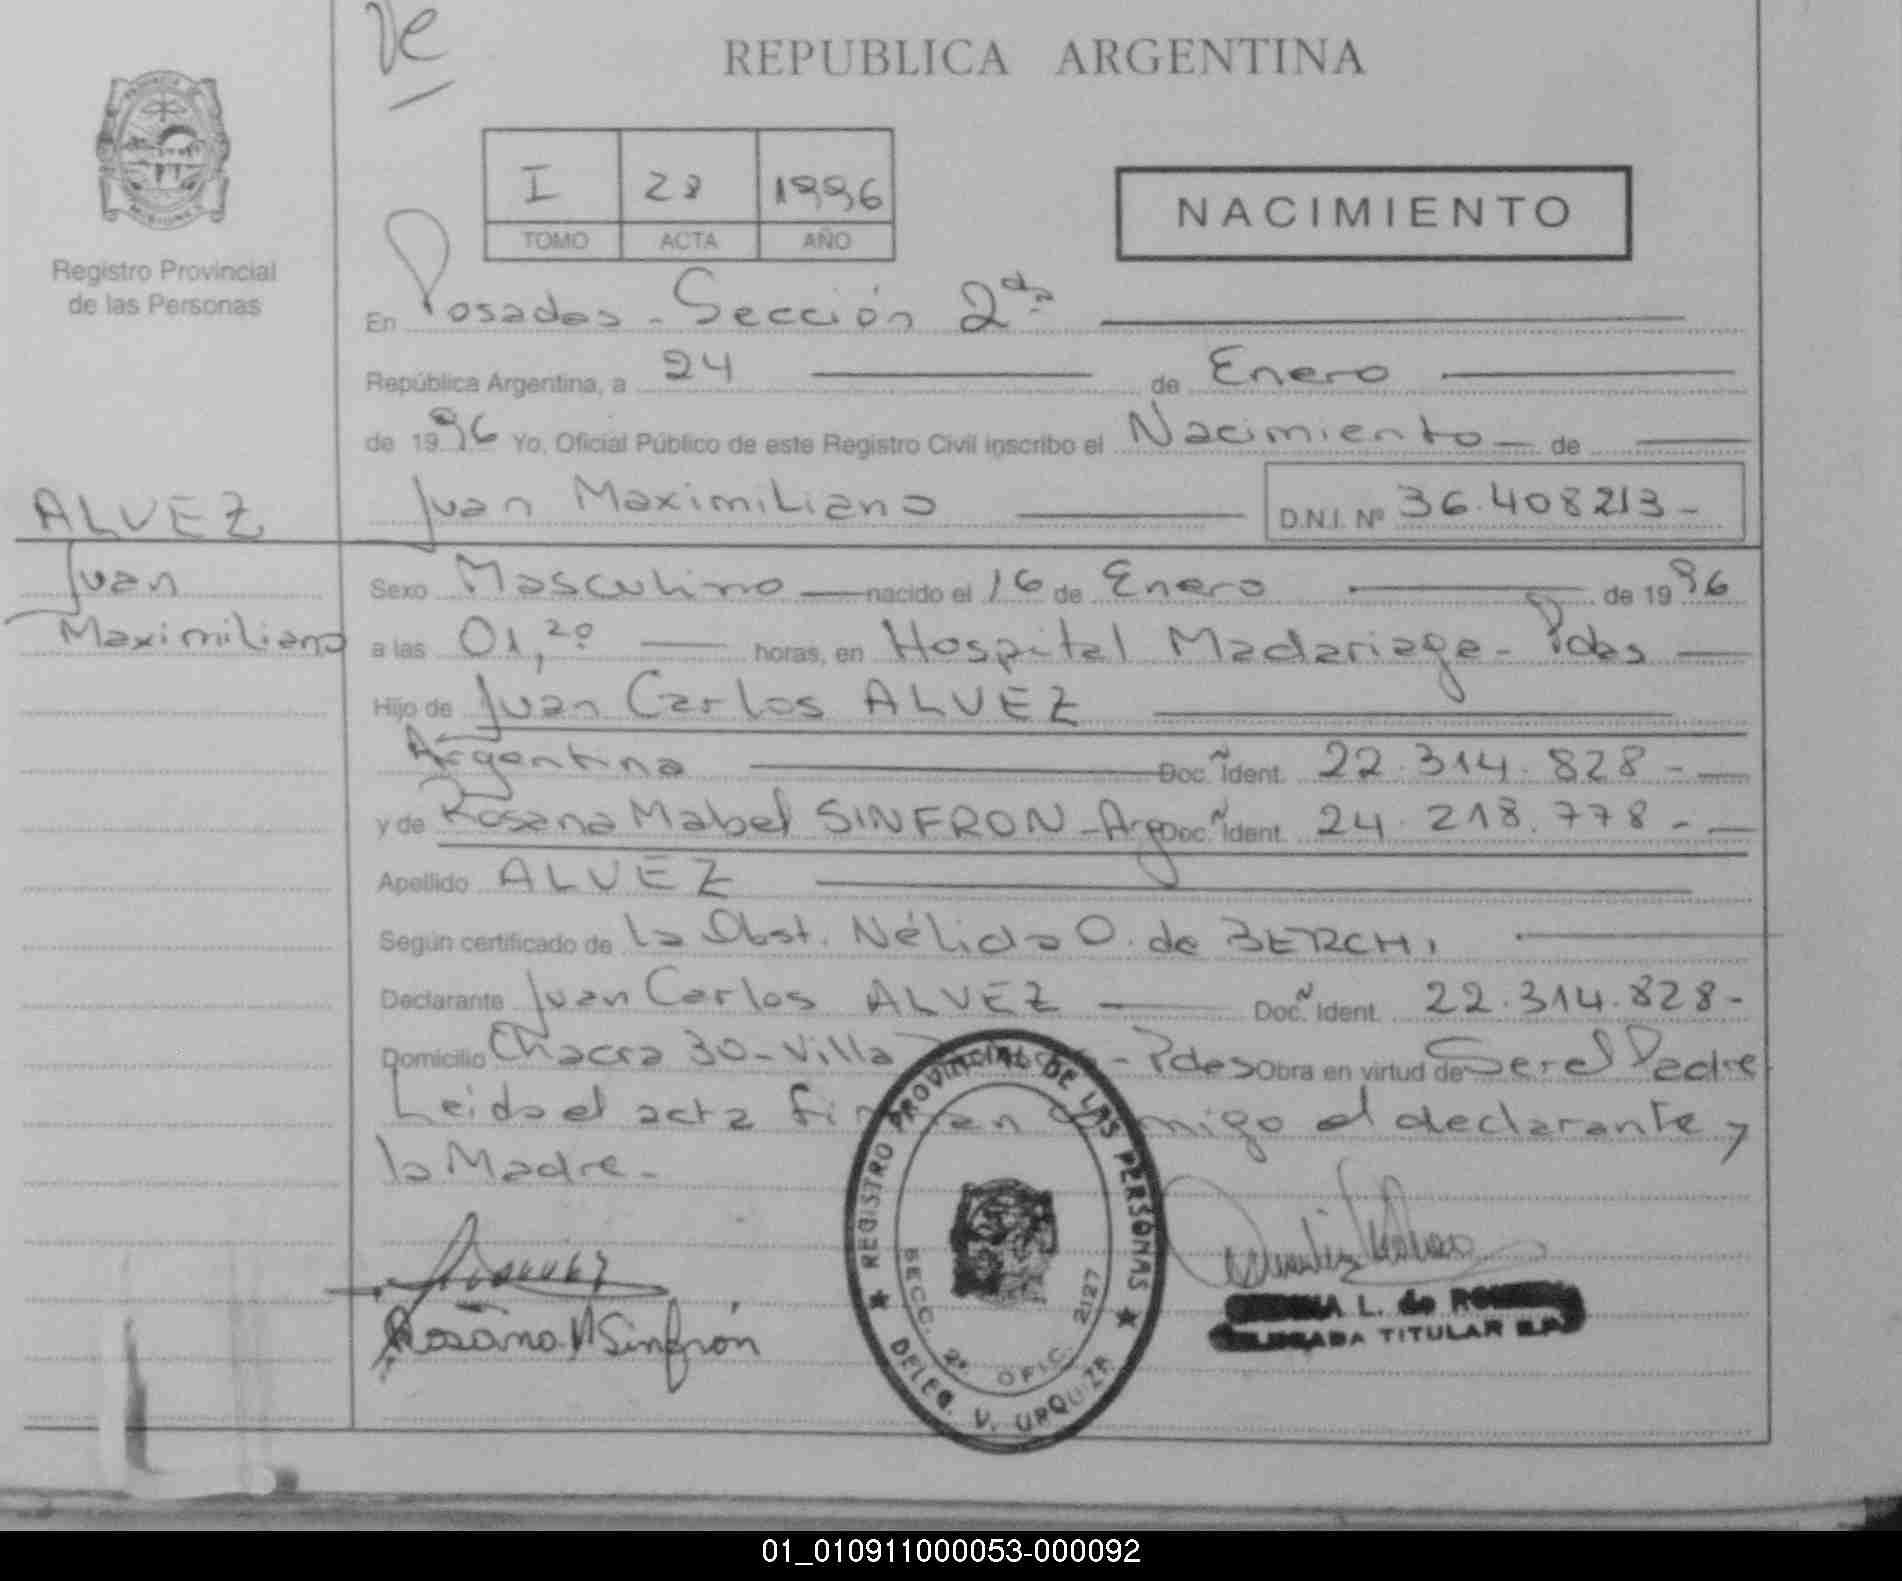 de
REPUBLICA ARGENTINA
I 28 1996
TOMO ACTA AÑO
NACIMIENTO
Registro Provincial
de las Personas
En Posadas - Sección 2da
República Argentina, a 24 de Enero
de 1996 Yo, Oficial Público de este Registro Civil inscribo el Nacimiento de
Juan Maximiliano D.N.I. Nº 36.408213-
ALVEZ
Juan
Maximiliano
Sexo Masculino nacido el 16 de Enero de 1996
a las 01,20 horas, en Hospital Madariaga - Pdas
Hijo de Juan Carlos ALVEZ
Argentina Doc. Ident. 22.314.828-
y de Rosana Mabel SINFRON - Arg Doc. Ident. 24.218.778-
Apellido ALVEZ
Según certificado de la Obst. Nélida O. de BERCHI
Declarante Juan Carlos ALVEZ Doc. Ident. 22.314.828-
Domicilio Chacra 30 - Villa - Pdas Obra en virtud de Ser el Padre
Leida el acta firman conmigo el declarante y
la Madre.
Rosana M Sinfrón
REGISTRO PROVINCIAL DE LAS PERSONAS
SECC. 2ª. OFIC. 2127
DELEG. V. URQUIZA
L. de
TITULAR
01_010911000053-000092